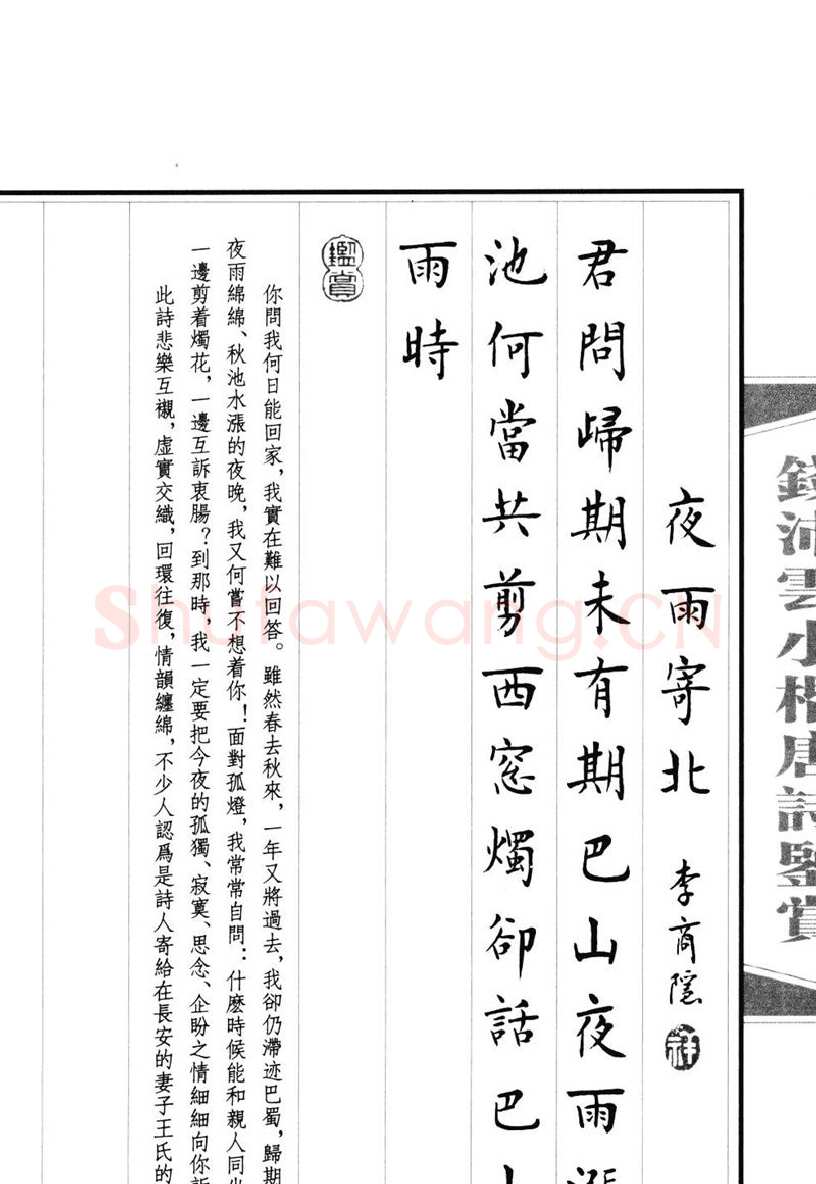 錢沛雲小楷唐詩鑒賞
夜雨寄北 李商隱 祥
君問歸期未有期巴山夜雨漲
池何當共剪西窓燭卻話巴山
雨時
鑑賞
你問我何日能回家，我實在難以回答。雖然春去秋來，一年又將過去，我卻仍滯迹巴蜀，歸期
夜雨綿綿、秋池水漲的夜晚，我又何嘗不想着你！面對孤燈，我常常自問：什麽時候能和親人同坐
一邊剪着燭花，一邊互訴衷腸？到那時，我一定要把今夜的孤獨、寂寞、思念、企盼之情細細向你訴
此詩悲樂互襯，虛實交織，回環往復，情韻纏綿，不少人認爲是詩人寄給在長安的妻子王氏的
Shufawang.CN